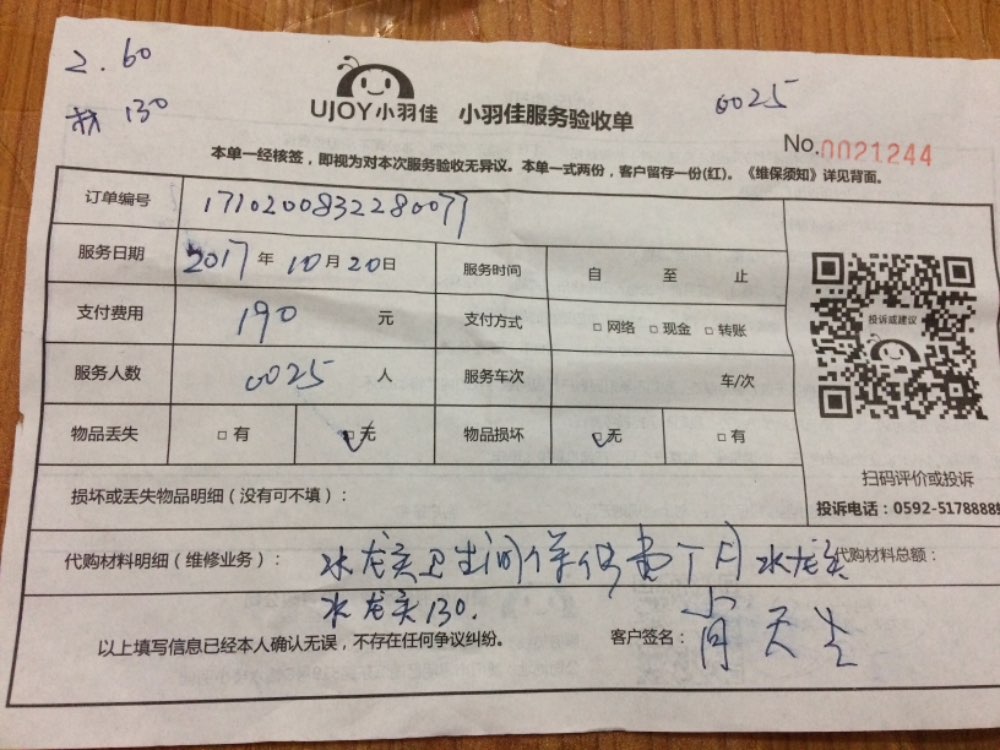 2. 60
材 130
UJOY小羽佳 小羽佳服务验收单
0025
No.0021244
本单一经核签,即视为对本次服务验收无异议。本单一式两份,客户留存一份(红)。《维保须知》详见背面。
订单编号 1710200832280077
服务日期 2017年10月20日 服务时间 自 至 止
支付费用 190 元 支付方式 □网络 □现金 □转账
投诉或建议
服务人数 0025 人 服务车次 车/次
物品丢失 □有 □无 物品损坏 □无 □有
扫码评价或投诉
损坏或丢失物品明细(没有可不填):
投诉电话:0592-5178888
代购材料明细(维修业务): 水龙头卫生间 水龙头 代购材料总额:
水龙头130.
以上填写信息已经本人确认无误,不存在任何争议纠纷。 客户签名: